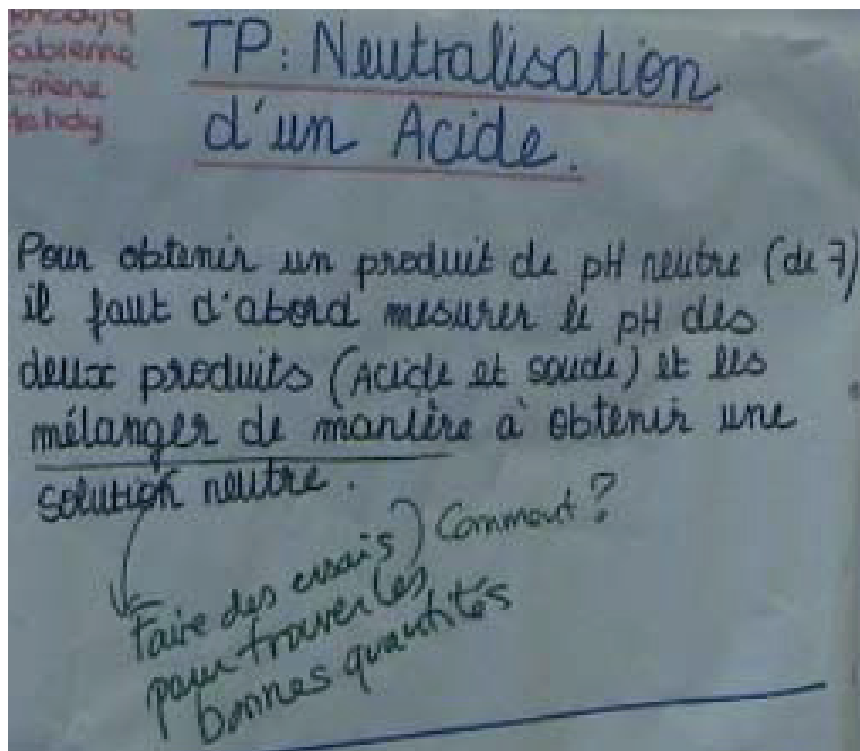 TP: Neutralisation
d'un Acide.
Pour obtenir un produit de pH neutre (de 7)
il faut d'abord mesurer le pH des
deux produits (Acide et soude) et les
mélanger de manière à obtenir une
solution neutre.
Comment ?
Faire des essais
pour trouver les
bonnes quantités